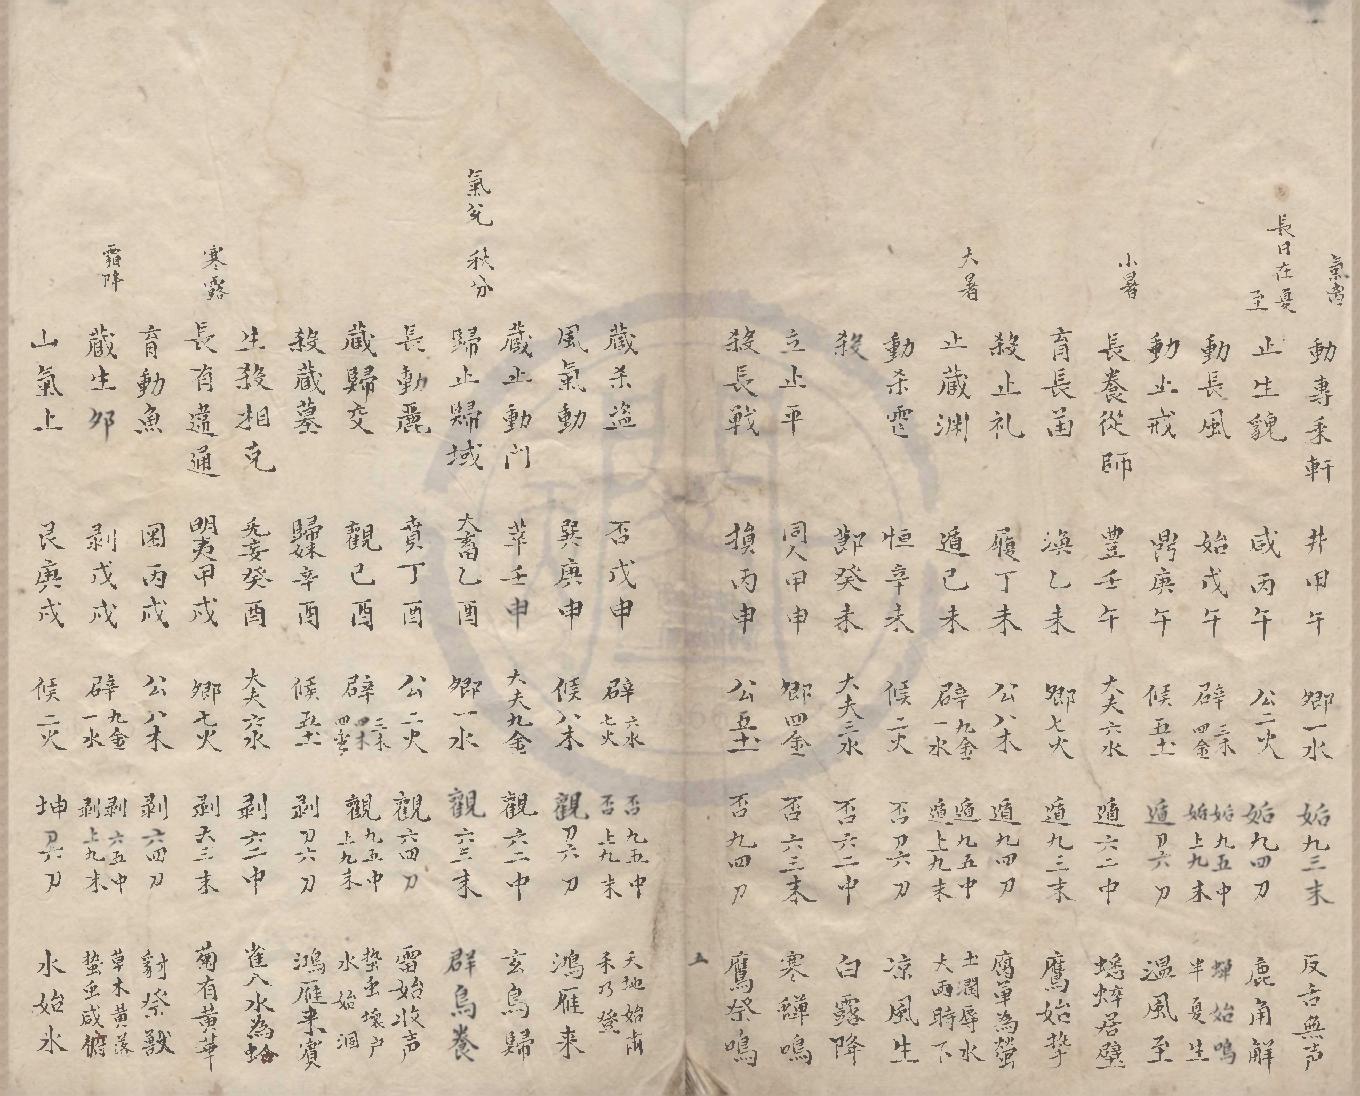 氣离 動專乘軒 井甲午 鄉一水 姤九三末 反舌無声
長日在夏至 止生貌 咸丙午 公二火 姤九四刀 鹿角解
動長風 姤戊午 辟三木四金 姤九五中姤上九末 蟬始鳴半夏生
動止戒 鼎庚午 候五土 遁刀六刀 温風至
小暑 長養從師 豊壬午 大夫六水 遁六二中 蟋蟀居壁
育長菡 渙乙未 鄉七火 遁九三末 鷹始摯
殺止礼 履丁未 公八木 遁九四刀 腐草為螢
大暑 止蔵渊 遁己未 辟九金一水 遁九五中遁上九末 土潤辱水大雨時下
動杀 恒辛未 候二火 否刀六刀 凉風生
殺 節癸未 大夫三水 否六二中 白露降
立止平 同人甲申 鄉四金 否六三末 寒蟬鳴
殺長戦 損丙申 公五土 否九四刀 鷹祭鳴
五
蔵杀盗 否戊申 辟六水七火 否九五中否上九末 天地始肅禾乃登
風氣動 巽庚申 候八木 觀刀六刀 鴻雁来
蔵止動门 萃壬申 大夫九金 觀六二中 玄鳥歸
氣兌 秋分 歸止歸域 大畜乙酉 鄉一水 觀六三末 群鳥養
長動麗 賁丁酉 公二火 觀六四刀 雷始收声
蔵歸交 觀己酉 辟三木四木四金 觀九五中上九末 蟄虫壊户水始涸
殺蔵墓 歸妹辛酉 候五土 剥刀六刀 鴻雁来賓
生殺相克 无妄癸酉 大夫六水 剥六二中 雀入水為蛤
寒露 長育違通 明夷甲戍 鄉七火 剥六三末 菊有黄華
育動魚 困丙戍 公八木 剥六四刀 豺祭獸
霜降 蔵生夘 剥戊戍 辟九金一水 剥六五中剥上九末 草木黄落蟄虫咸俯
山氣上 艮庚戍 候二火 坤刀六刀 水始氷